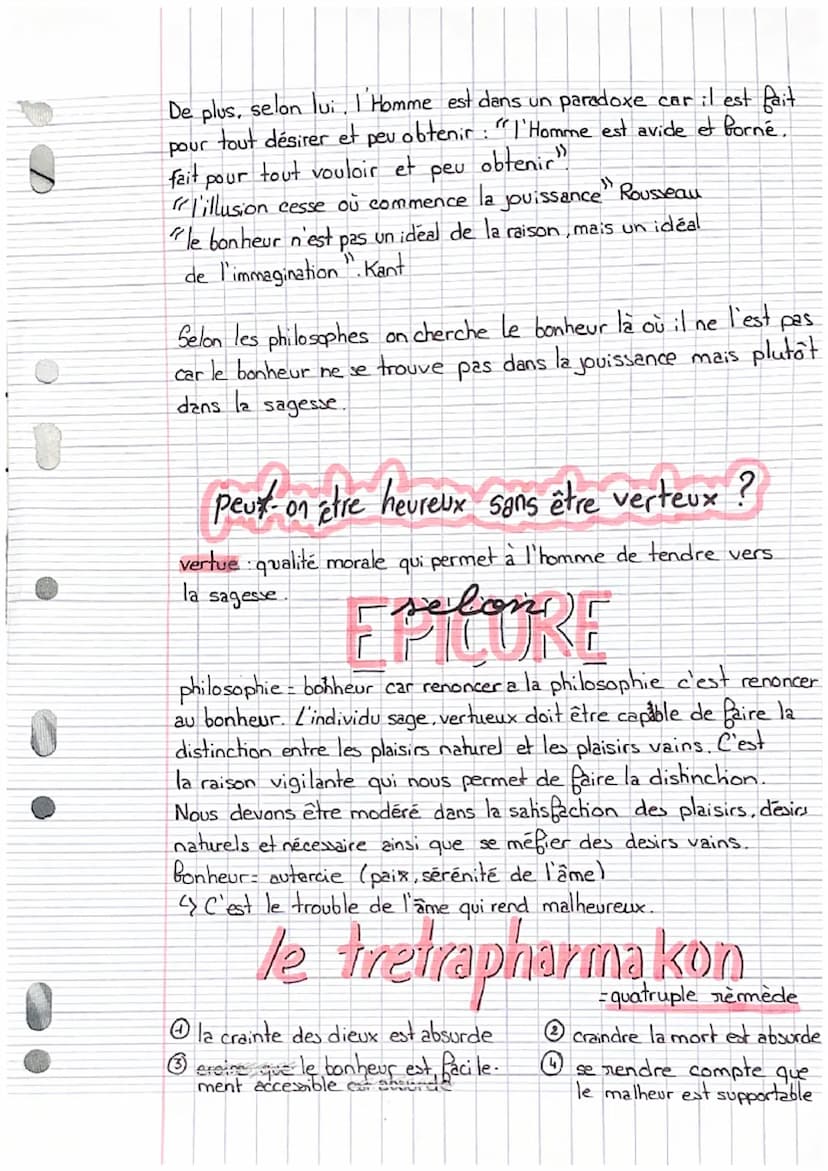 De plus, selon lui, l'Homme est dans un paradoxe car il est fait
pour tout désirer et peu obtenir : "l'Homme est avide et borné,
fait pour tout vouloir et peu obtenir".
"l'illusion cesse où commence la jouissance" Rousseau
"le bonheur n'est pas un idéal de la raison, mais un idéal
de l'immagination". Kant
Selon les philosophes on cherche le bonheur là où il ne l'est pas
car le bonheur ne se trouve pas dans la jouissance mais plutôt
dans la sagesse.
peut-on être heureux sans être verteux ?
vertue : qualité morale qui permet à l'homme de tendre vers
la sagesse.
selon
EPICURE
philosophie = bonheur car renoncer a la philosophie c'est renoncer
au bonheur. L'individu sage, vertueux doit être capable de faire la
distinction entre les plaisirs naturel et les plaisirs vains. C'est
la raison vigilante qui nous permet de faire la distinction.
Nous devons être modéré dans la satisfaction des plaisirs, désirs
naturels et nécessaire ainsi que se méfier des desirs vains.
bonheur = autarcie (paix, sérénité de l'âme)
↳ C'est le trouble de l'âme qui rend malheureux.
le tretrapharmakon
=quatruple rèmède
① la crainte des dieux est absurde
② craindre la mort est absurde
③ croire que le bonheur est facile-
ment accessible est absurde
④ se rendre compte que
le malheur est supportable